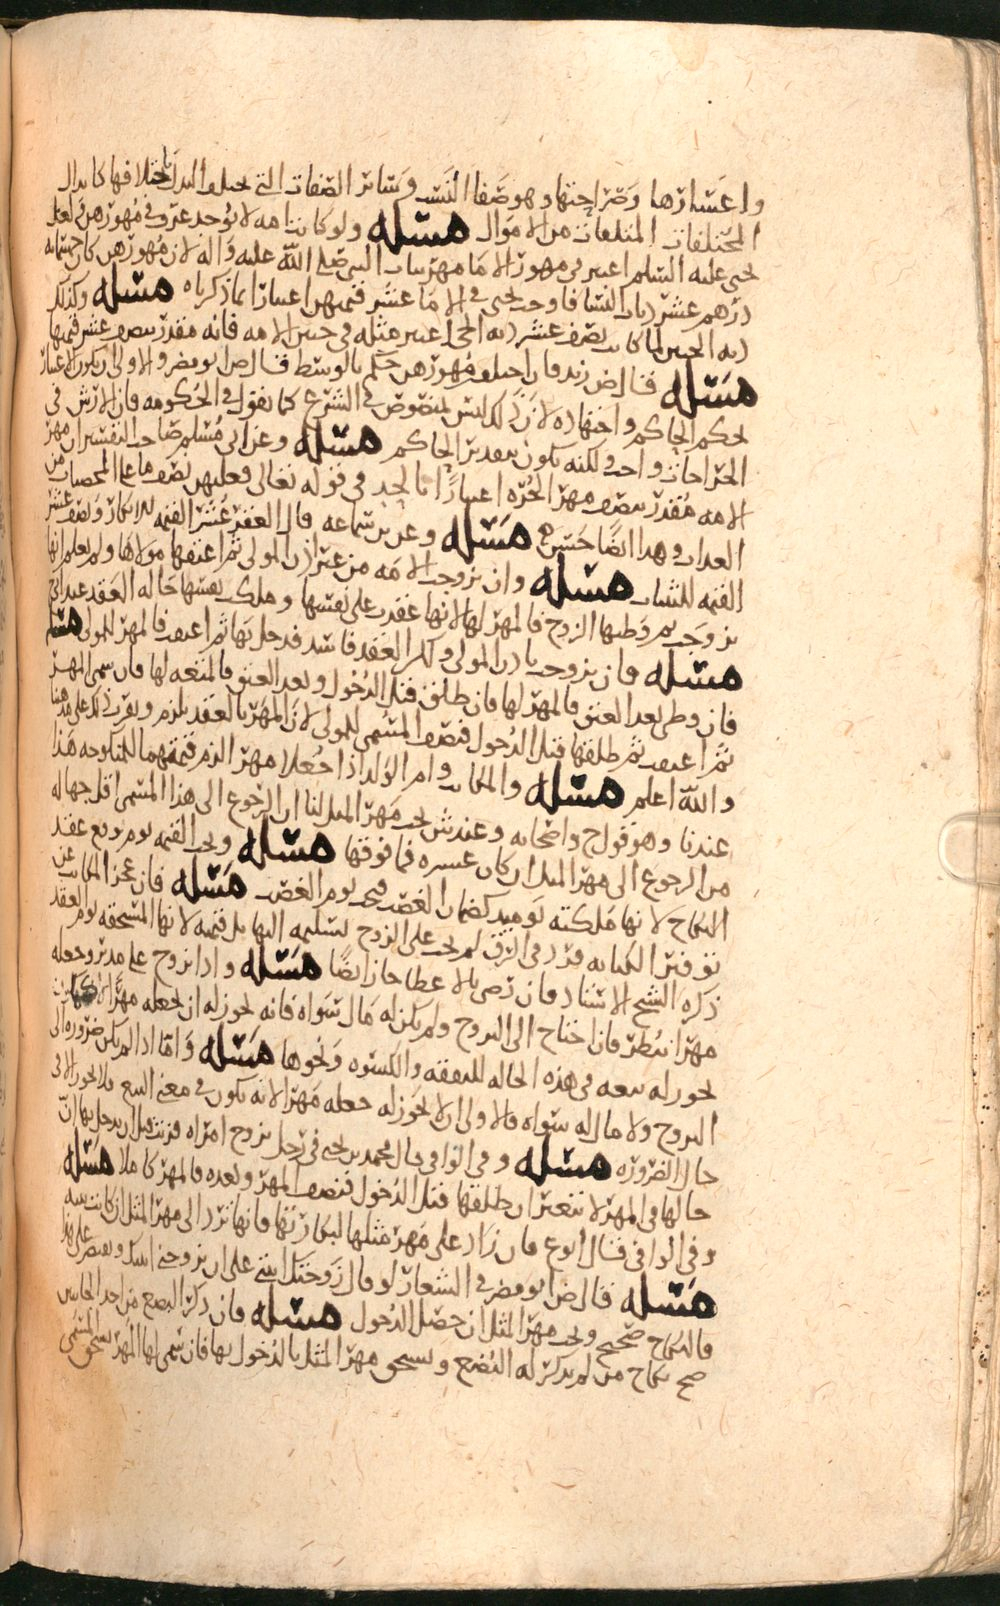 واعسارها وصراحتها وهو صفا النسب وسائر الصفات التي يختلف البدل باختلافها كابدال
المختلفات المتلفات من الاموال مسئله ولو كانت امه لا يوجد عرف في مهورهن
يحيى عليه السلم اعتبر في مهور الاما مهر بنات النبي صلى الله عليه واله لان مهورهن كان خمسمايه
درهم عشر ديات النسا فاوجب يحيى في الاما عشر قيمتهن اعتبارا بما ذكرناه مسئله وكذلك
ديه الجنين لما كانت نصف عشر ديه الحي اعتبر مثله في جنين الامه فانه مقدر بنصف عشر قيمتها
مسئله قال ض زيد فان اختلف مهورهن حكم بالوسط قال ض ابو مضر والاولى ان يكون الاعتبار
بحكم الحاكم واجتهاده لان ذلك ليس بمنصوص في الشرع كما نقول في الحكومه فان الارش في
الجراحات واجب ولكنه يكون بتقدير الحاكم مسئله وعن ابي مسلم صاحب التفسير ان مهر
الامه مقدر بنصف مهر الحره اعتبارا بالحد في قوله تعالى فعليهن نصف ما على المحصنات من
العذاب وهذا ايضا حسن مسئله وعن بن سماعه قال العقر عشر القيمه للابكار ونصف عشر
القيمه للثيب مسئله وان تزوجت الامه من غير اذن المولى ثم اعتقها مولاها ولم يعلم انها
تزوجت ثم وطيها الزوج فالمهر لها لانها عقدت على نفسها وملكت نفسها حاله العقد
مسئله فان تزوجت باذن المولى وكان العقد فاسد فدخل بها ثم اعتقت فالمهر للمولى مسئله
فان وطى بعد العتق فالمهر لها فان طلق قبل الدخول وبعد العتق فالمتعه لها فان سمى المهر
ثم اعتقت ثم طلقها قبل الدخول فنصف المسمى للمولى لان المهر بالعقد يلزم
والله اعلم مسئله والمكاتب وام الولد اذا جعلا مهر الزم قيمتهما للمنكوحه هذا
عندنا وهو قول ح واصحابه وعند ش يجب مهر المثل لنا ان الرجوع الى هذا المسمى اقل جهاله
من الرجوع الى مهر المثل ان كان عشره فما فوقها مسئله ويجب القيمه يوم وقع عقد
النكاح لانها ملكته يوميذ كضمان الغصب فيجب يوم الغصب مسئله فان عجز المكاتب عن
توفير الكتابه فرد في الرق لم يجب على الزوج تسليمه اليها بل قيمته لانها المستحقه يوم العقد
ذكره الشيخ الاستاد فان رضي بالاعطا جاز ايضا مسئله واذا تزوج على مدبر وجعله
مهرا نظر فان احتاج الى التزوج ولم يكن له مال سواه فانه يجوز له ان يجعله مهرا لانه
يجوز له بيعه في هذه الحاله للنفقه والكسوه ونحوها مسئله واما اذا لم يكن ضروره الى
التزوج ولا مال له سواه فالاولى ان لا يجوز له جعله مهرا لانه يكون في معنى البيع فلا يجوز الا في
حال الضروره مسئله وفي الوافي قال محمد بن يحيى في رجل تزوج امراه فزنت قبل ان يدخل بها ان
حالها في المهر لا تتغير ان طلقها قبل الدخول فنصف المهر وبعده فالمهر كاملا مسئله
وفي الوافي قال ابو ع فان زاد على مهر مثلها لبكارتها فانها ترد الى مهر المثل ان كانت ثيبه
مسئله قال ض ابو مضر في الشغار لو قال زوجتك ابنتي على ان تزوجني ابنتك
فالنكاح صحيح ويجب مهر المثل ان حصل الدخول مسئله فان ذكر البضع من احد الجانبين
صح نكاح من لم يذكر له البضع ويستحق مهر المثل بالدخول بها فان سمى لها المهر يستحق المسمى